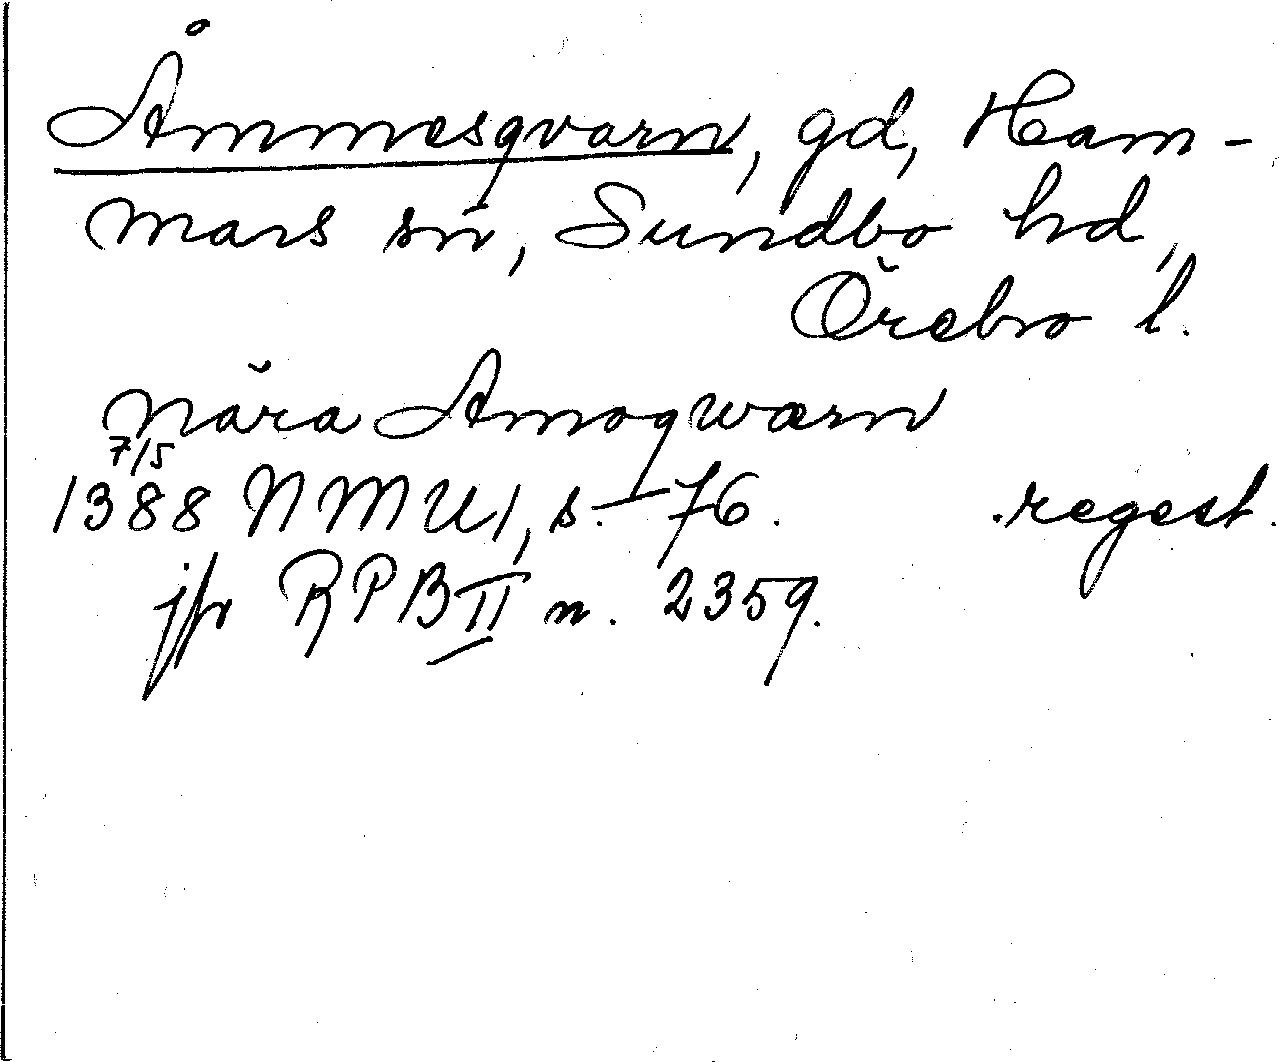 Åmmesqvarn, gd, Ham-
mars sn, Sundbo hd,
Örebro l.
nära Amoqwærn
7/5
1388 NMU 1, s. 76. regest.
jfr RPB II n. 2359.